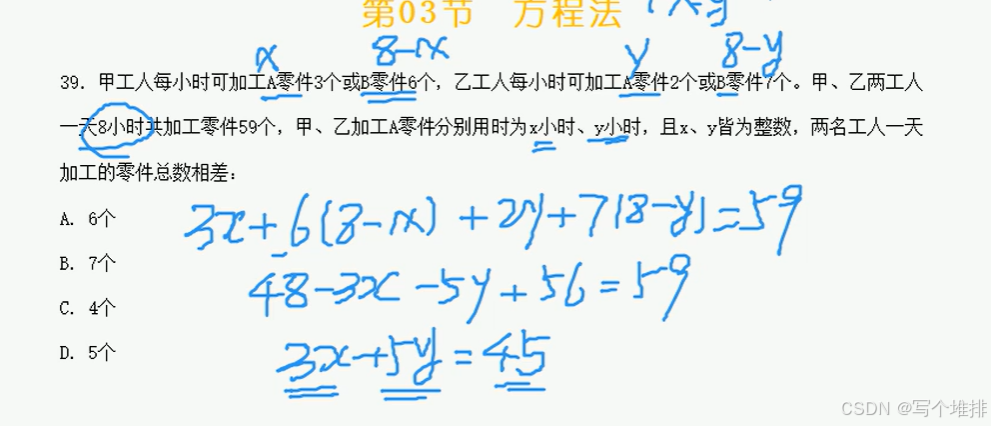 第03节 方程法
x 8-x y 8-y
39. 甲工人每小时可加工A零件3个或B零件6个，乙工人每小时可加工A零件2个或B零件7个。甲、乙两工人
一天8小时共加工零件59个，甲、乙加工A零件分别用时为x小时、y小时，且x、y皆为整数，两名工人一天
加工的零件总数相差：
A. 6个
3x+6(8-x)+2y+7(8-y)=59
B. 7个
48-3x-5y+56=59
C. 4个
D. 5个
3x+5y=45
CSDN @写个堆排